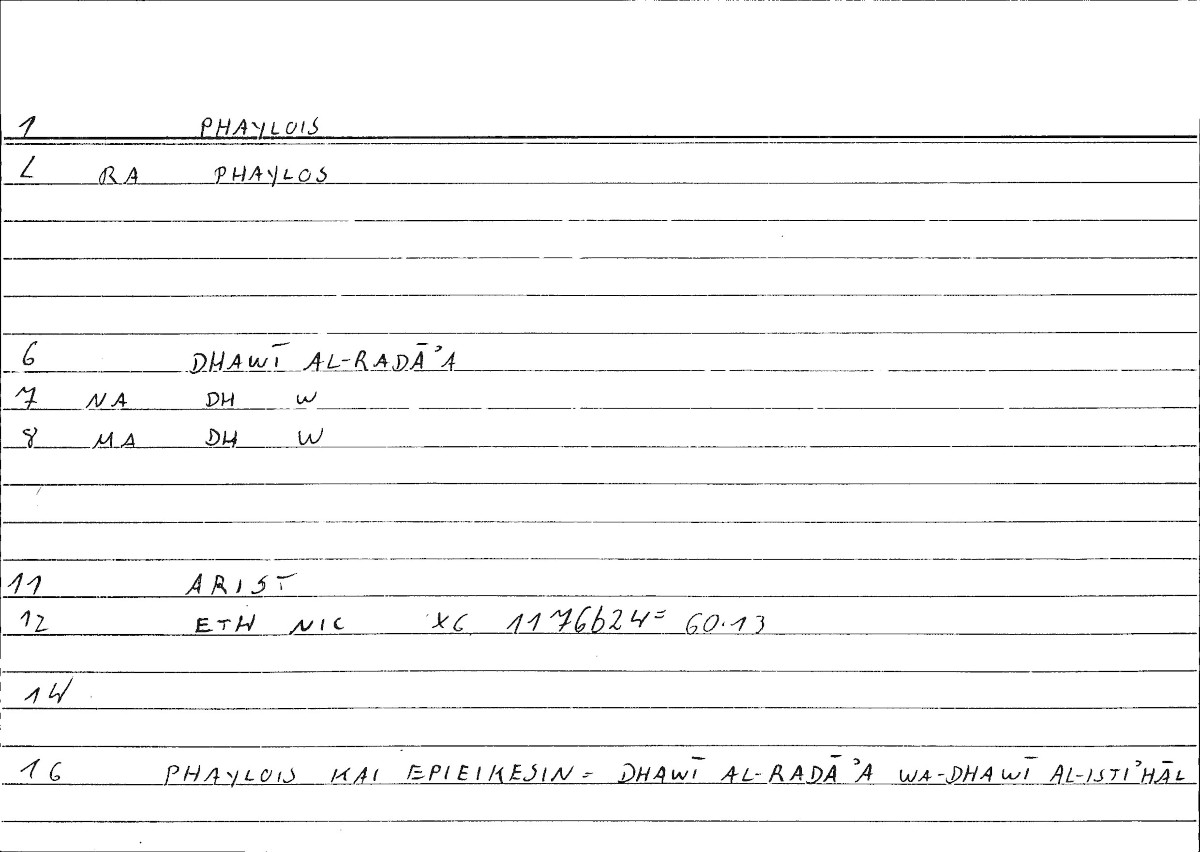 1 PHAYLOIS
2 RA PHAYLOS
6 DHAWĪ AL-RADĀʾA
7 NA DH W
8 MA DH W
11 ARIST
12 ETH NIC X6 1176b24= 60.13
14
16 PHAYLOIS KAI EPIEIKESIN = DHAWĪ AL-RADĀʾA WA-DHAWĪ AL-ISTIʾHĀL